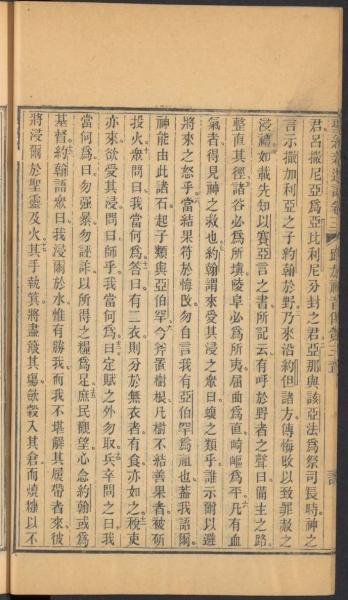 君呂撒尼亞爲亞比利尼分封之君亞那與該亞法爲祭司長時神之
言示撒加利亞之子約翰於野乃來沿約但諸方傳悔改以致罪赦之
浸禮如載先知以賽亞言之書所記云有呼於野者之聲曰備主之路
整直其徑諸谷必爲所填陵阜必爲所夷屈曲爲直崎嶇爲平凡有血
氣者得見神之救也約翰謂來受其浸之眾曰蝮之類乎誰示爾以避
將來之怒乎當結果符於悔改勿自言我有亞伯罕爲祖也蓋我語爾
神能由此諸石起子類與亞伯罕今斧置樹根凡樹不結善果者被斫
投火眾問曰我當何爲答曰有二衣則分於無衣者有食亦如之稅吏
亦來欲受其浸問曰師乎我當何爲曰定賦之外勿取兵卒問之曰我
當何爲曰勿强暴勿誣詐以所得之糧爲足庶民觀望心念約翰或爲
基督約翰語眾曰我浸爾於水惟有勝我而我不堪解其履帶者來彼
將浸爾於聖靈及火其手執箕將盡簸其場歛穀入其倉而燒糠以不